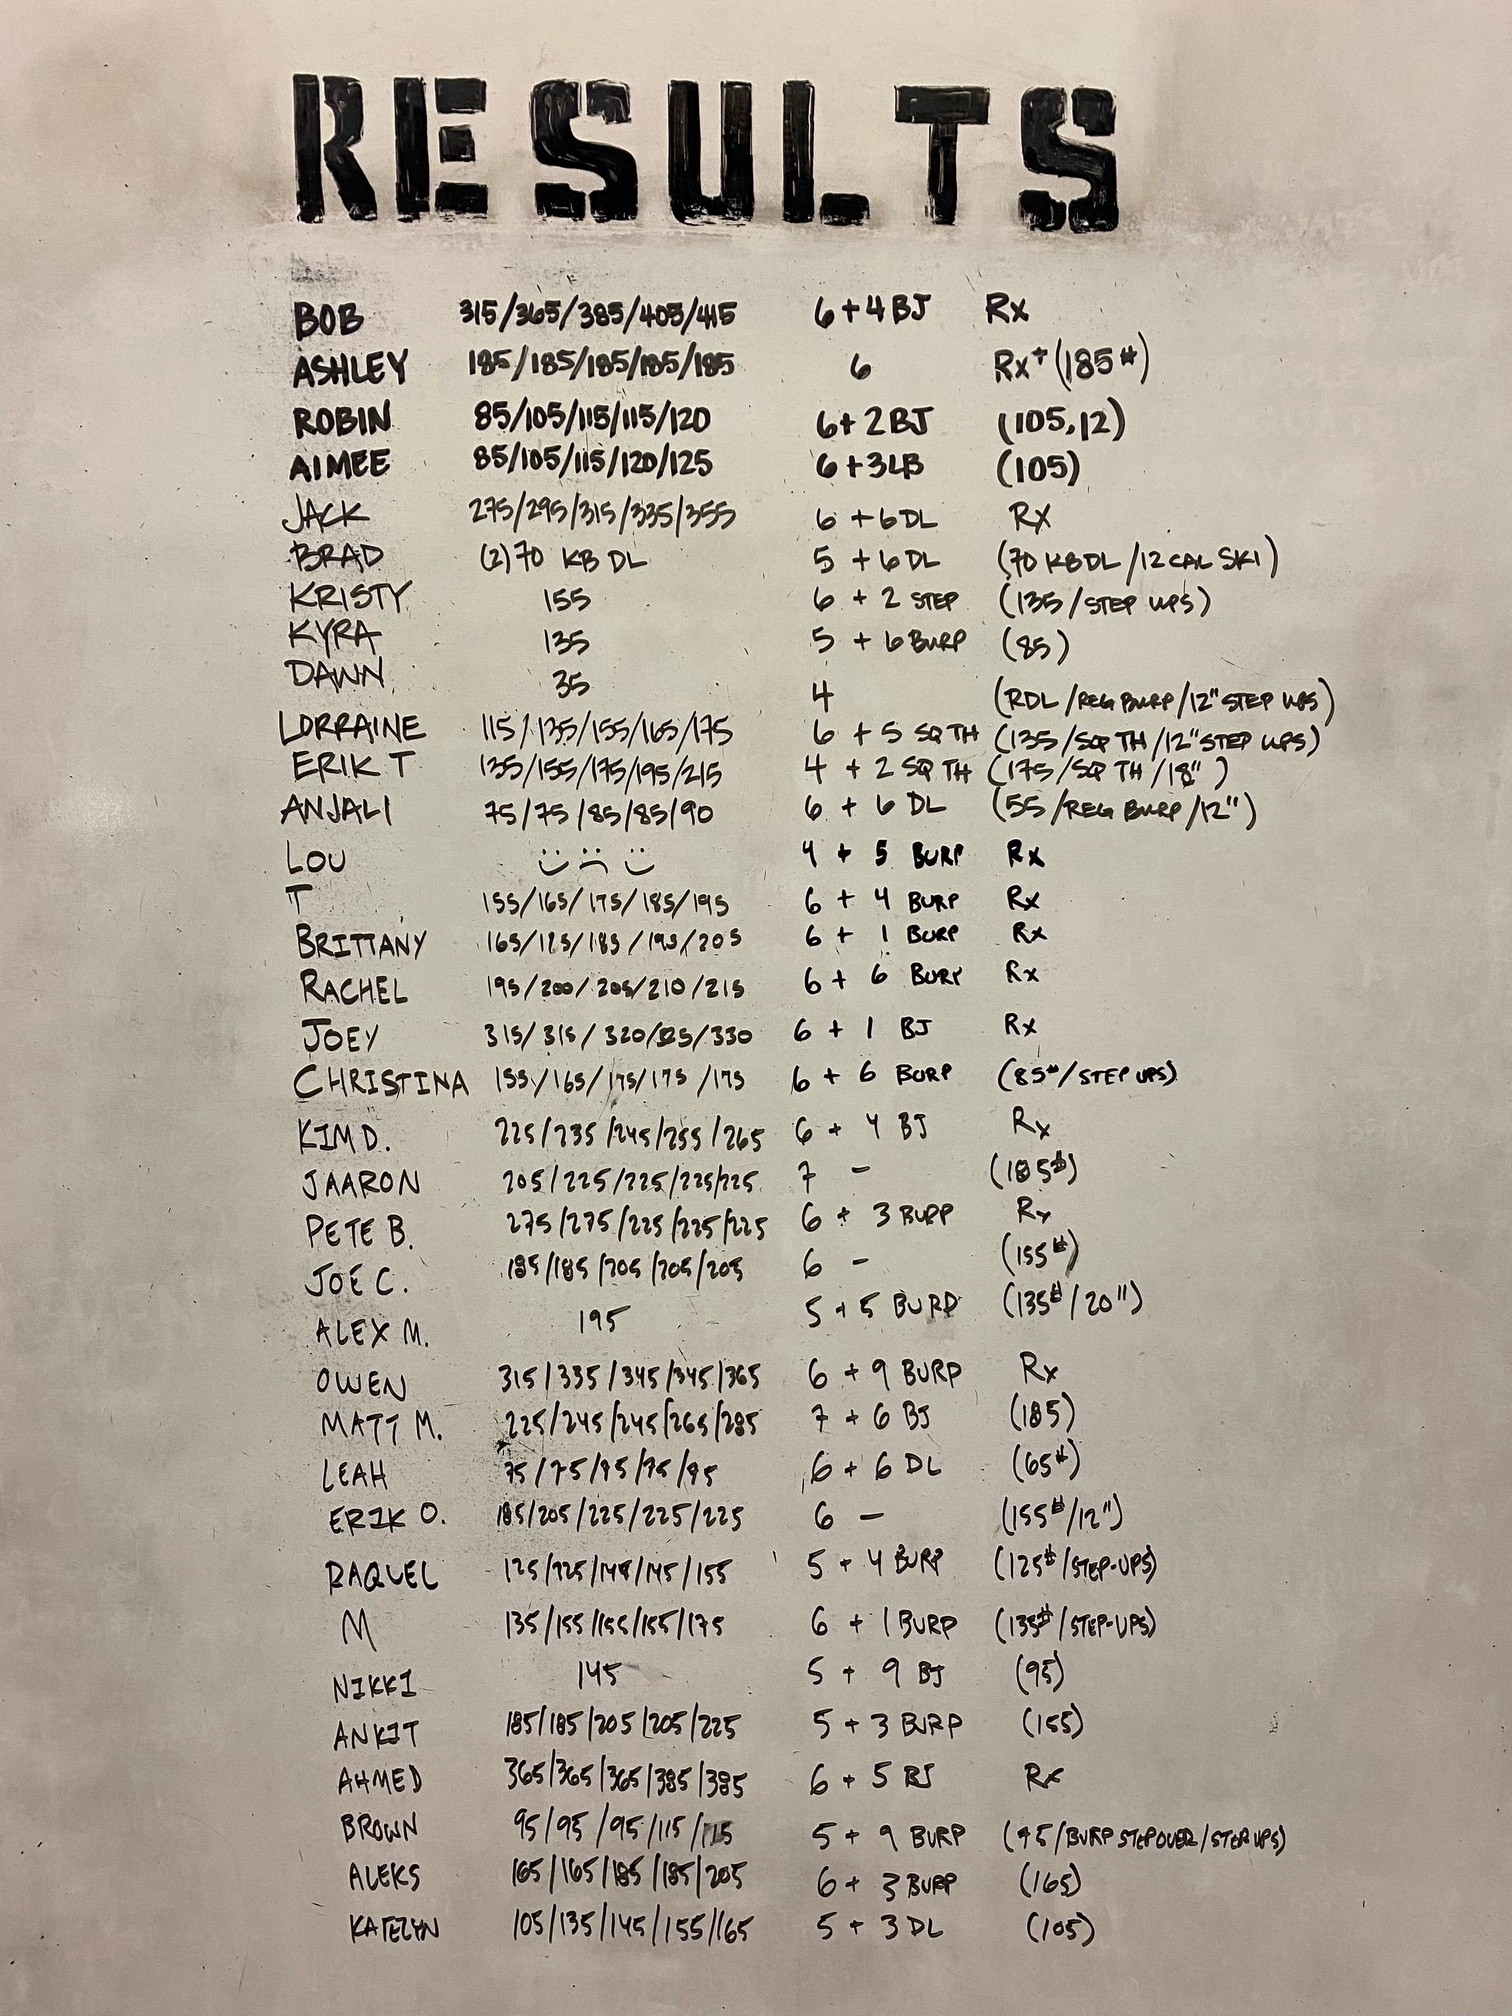 RESULTS
BOB 315/365/385/405/415 6+4 BJ Rx
ASHLEY 185/185/185/185/185 6 Rx+ (185#)
ROBIN 85/105/115/115/120 6+2 BJ (105,12)
AIMEE 85/105/115/120/125 6+3LB (105)
JACK 275/295/315/335/355 6 +6 DL RX
BRAD (2)70 KB DL 5 + 6 DL (70 KBDL/12 CAL SKI)
KRISTY 155 6 + 2 STEP (135/STEP UPS)
KYRA 135 5 + 6 BURP (85)
DAWN 35 4 (RDL/REG BURP/12" STEP UPS)
LORRAINE 115/135/155/165/175 6 + 5 SQ TH (135/SQ TH/12" STEP UPS)
ERIK T 135/155/175/195/215 4 + 2 SQ TH (175/SQ TH/18")
ANJALI 75/75/85/85/90 6 + 6 DL (55/REG BURP/12")
LOU 4 + 5 BURP Rx
T 155/165/175/185/195 6 + 4 BURP Rx
BRITTANY 165/175/185/195/205 6 + 1 BURP Rx
RACHEL 195/200/205/210/215 6 + 6 BURP Rx
JOEY 315/315/320/325/330 6 + 1 BJ Rx
CHRISTINA 155/165/175/175/175 6 + 6 BURP (85#/STEP UPS)
KIM D. 225/235/245/255/265 6 + 4 BJ Rx
JAARON 205/225/225/225/225 7 - (185#)
PETE B. 275/275/225/225/225 6 + 3 BURP Rx
JOE C. 185/185/205/205/205 6 - (155#)
ALEX M. 195 5 + 5 BURP (135#/20")
OWEN 315/335/345/345/365 6 + 9 BURP Rx
MATT M. 225/245/245/265/285 7 + 6 BJ (185)
LEAH 6 + 6 DL (65#)
ERIK O. 185/205/225/225/225 6 - (155#/12")
RAQUEL 5 + 4 BURP (125#/STEP-UPS)
M 135/155/155/155/175 6 + 1 BURP (135#/STEP-UPS)
NIKKI 145 5 + 9 BJ (95)
ANKIT 185/185/205/205/225 5 + 3 BURP (155)
AHMED 365/365/365/385/385 6 + 5 BJ Rx
BROWN 95/95/95/115/115 5 + 9 BURP (95/BURP STEPOVER/STEP UPS)
ALEKS 165/165/185/185/205 6 + 3 BURP (165)
KATELYN 105/135/145/155/165 5 + 3 DL (105)